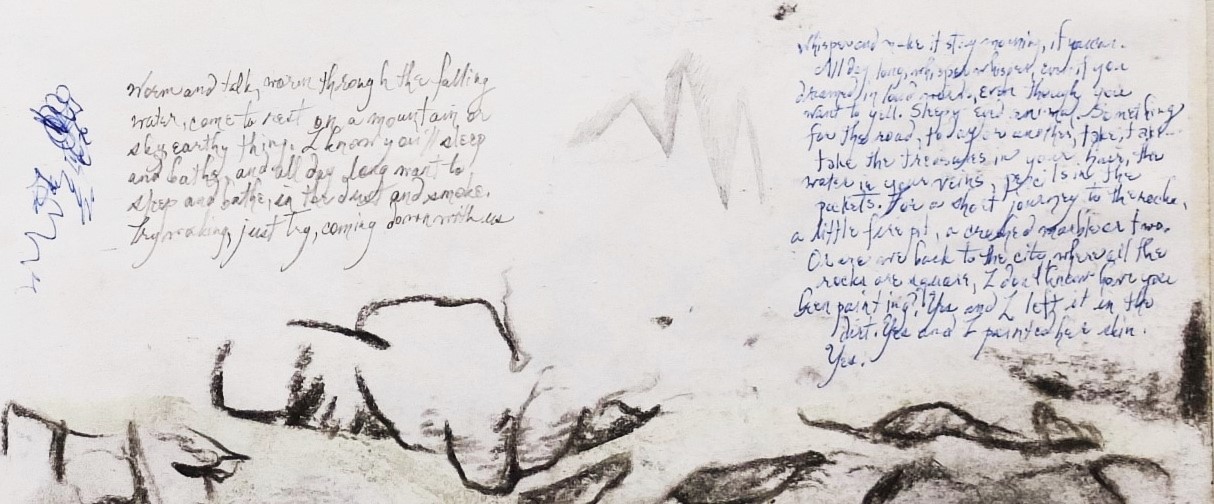 Worm and talk, worm through the falling
water, come to rest on a mountain or
sky, earthy thing. I know you'll sleep
and bathe, and all day long want to
sleep and bathe, in the dust and smoke.
Try waking, just try, coming down with us
Whisper and make it stay morning, if you can.
All day long, whisper whisper, even if you
dreamed in loud words, even though you
want to yell. Sleepy eyed animal. Something
for the road, today or another, take, take
take the treasures in your hair, the
water in your veins, pencils in the
pockets. For a short journey to the rocks,
a little fire pit, a crushed marble or two.
Or are we back to the city, where all the
rocks are square, I don't know have you
been painting? Yes and I left it in the
dirt. Yes and I painted her skin.
Yes.